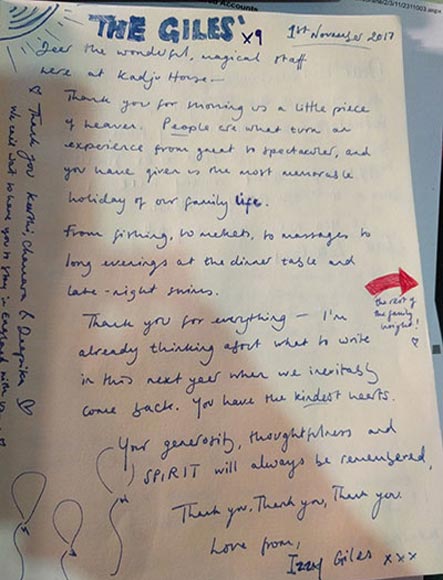 THE GILES' x9
1st November 2017
Dear the wonderful, magical staff
here at Kadju House —
Thank you for showing us a little piece
of heaven. People are what turn an
experience from great to spectacular, and
you have given us the most memorable
holiday of our family life.
From fishing, to markets, to massages to
long evenings at the dinner table and
late-night swims.
Thank you for everything — I'm
already thinking about what to write
in this next year when we inevitably
come back. You have the kindest hearts.
Your generosity, thoughtfulness and
SPIRIT will always be remembered,
Thank you, Thank you, Thank you.
Love from,
Izzy Giles xxx
the rest of
the family
insight!
Thank you Kanthi, Chamara & Deepika
We can't wait to have you to stay in England with